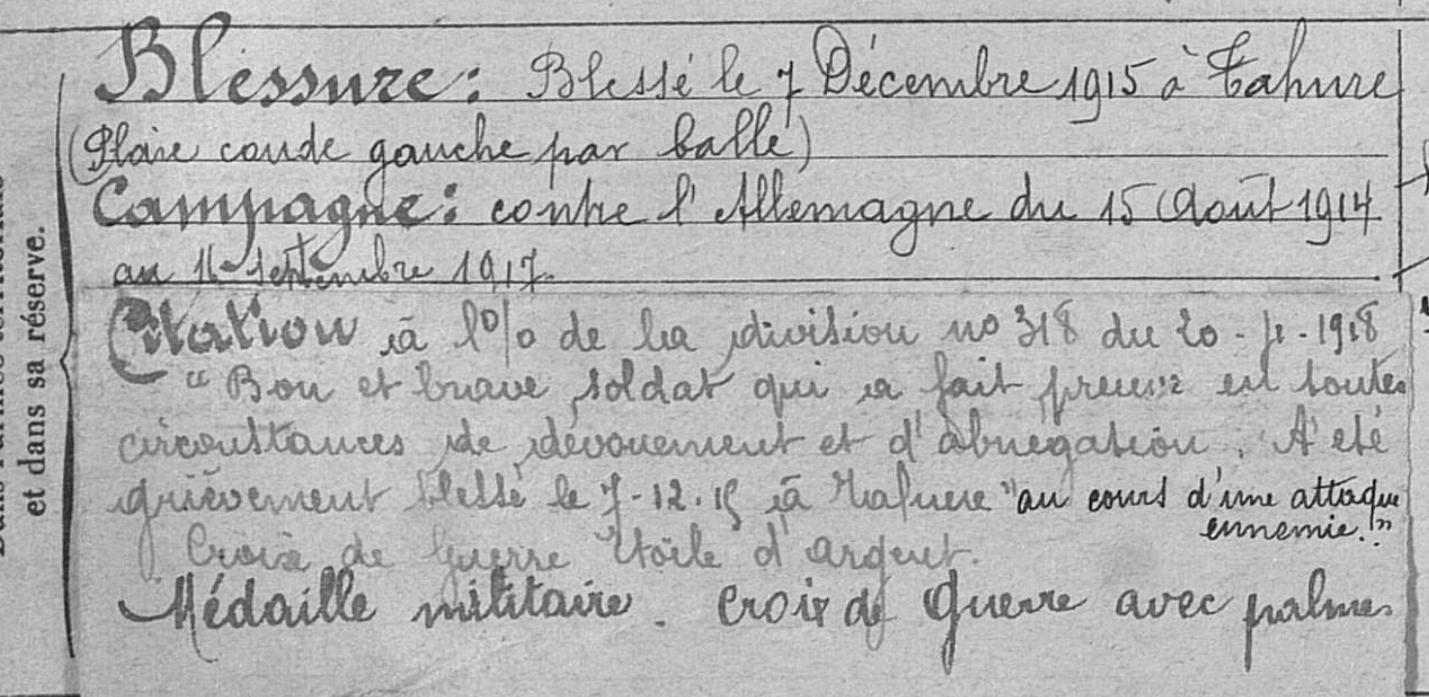 Blessure: Blessé le 7 Décembre 1915 à Tahure
(Plaie coude gauche par balle)
Campagne: contre l'Allemagne du 15 Août 1914
au 16 septembre 1917.
Citation à l'o/o de la division no 318 du 20- -1918
"Bon et brave soldat qui a fait preuve en toutes
circonstances de dévouement et d'abnégation. A été
grièvement blessé le 7-12-15 à Tahure "au cours d'une attaque
ennemie."
Croix de Guerre Etoile d'argent.
Médaille militaire. Croix de Guerre avec palmes
et dans sa réserve.